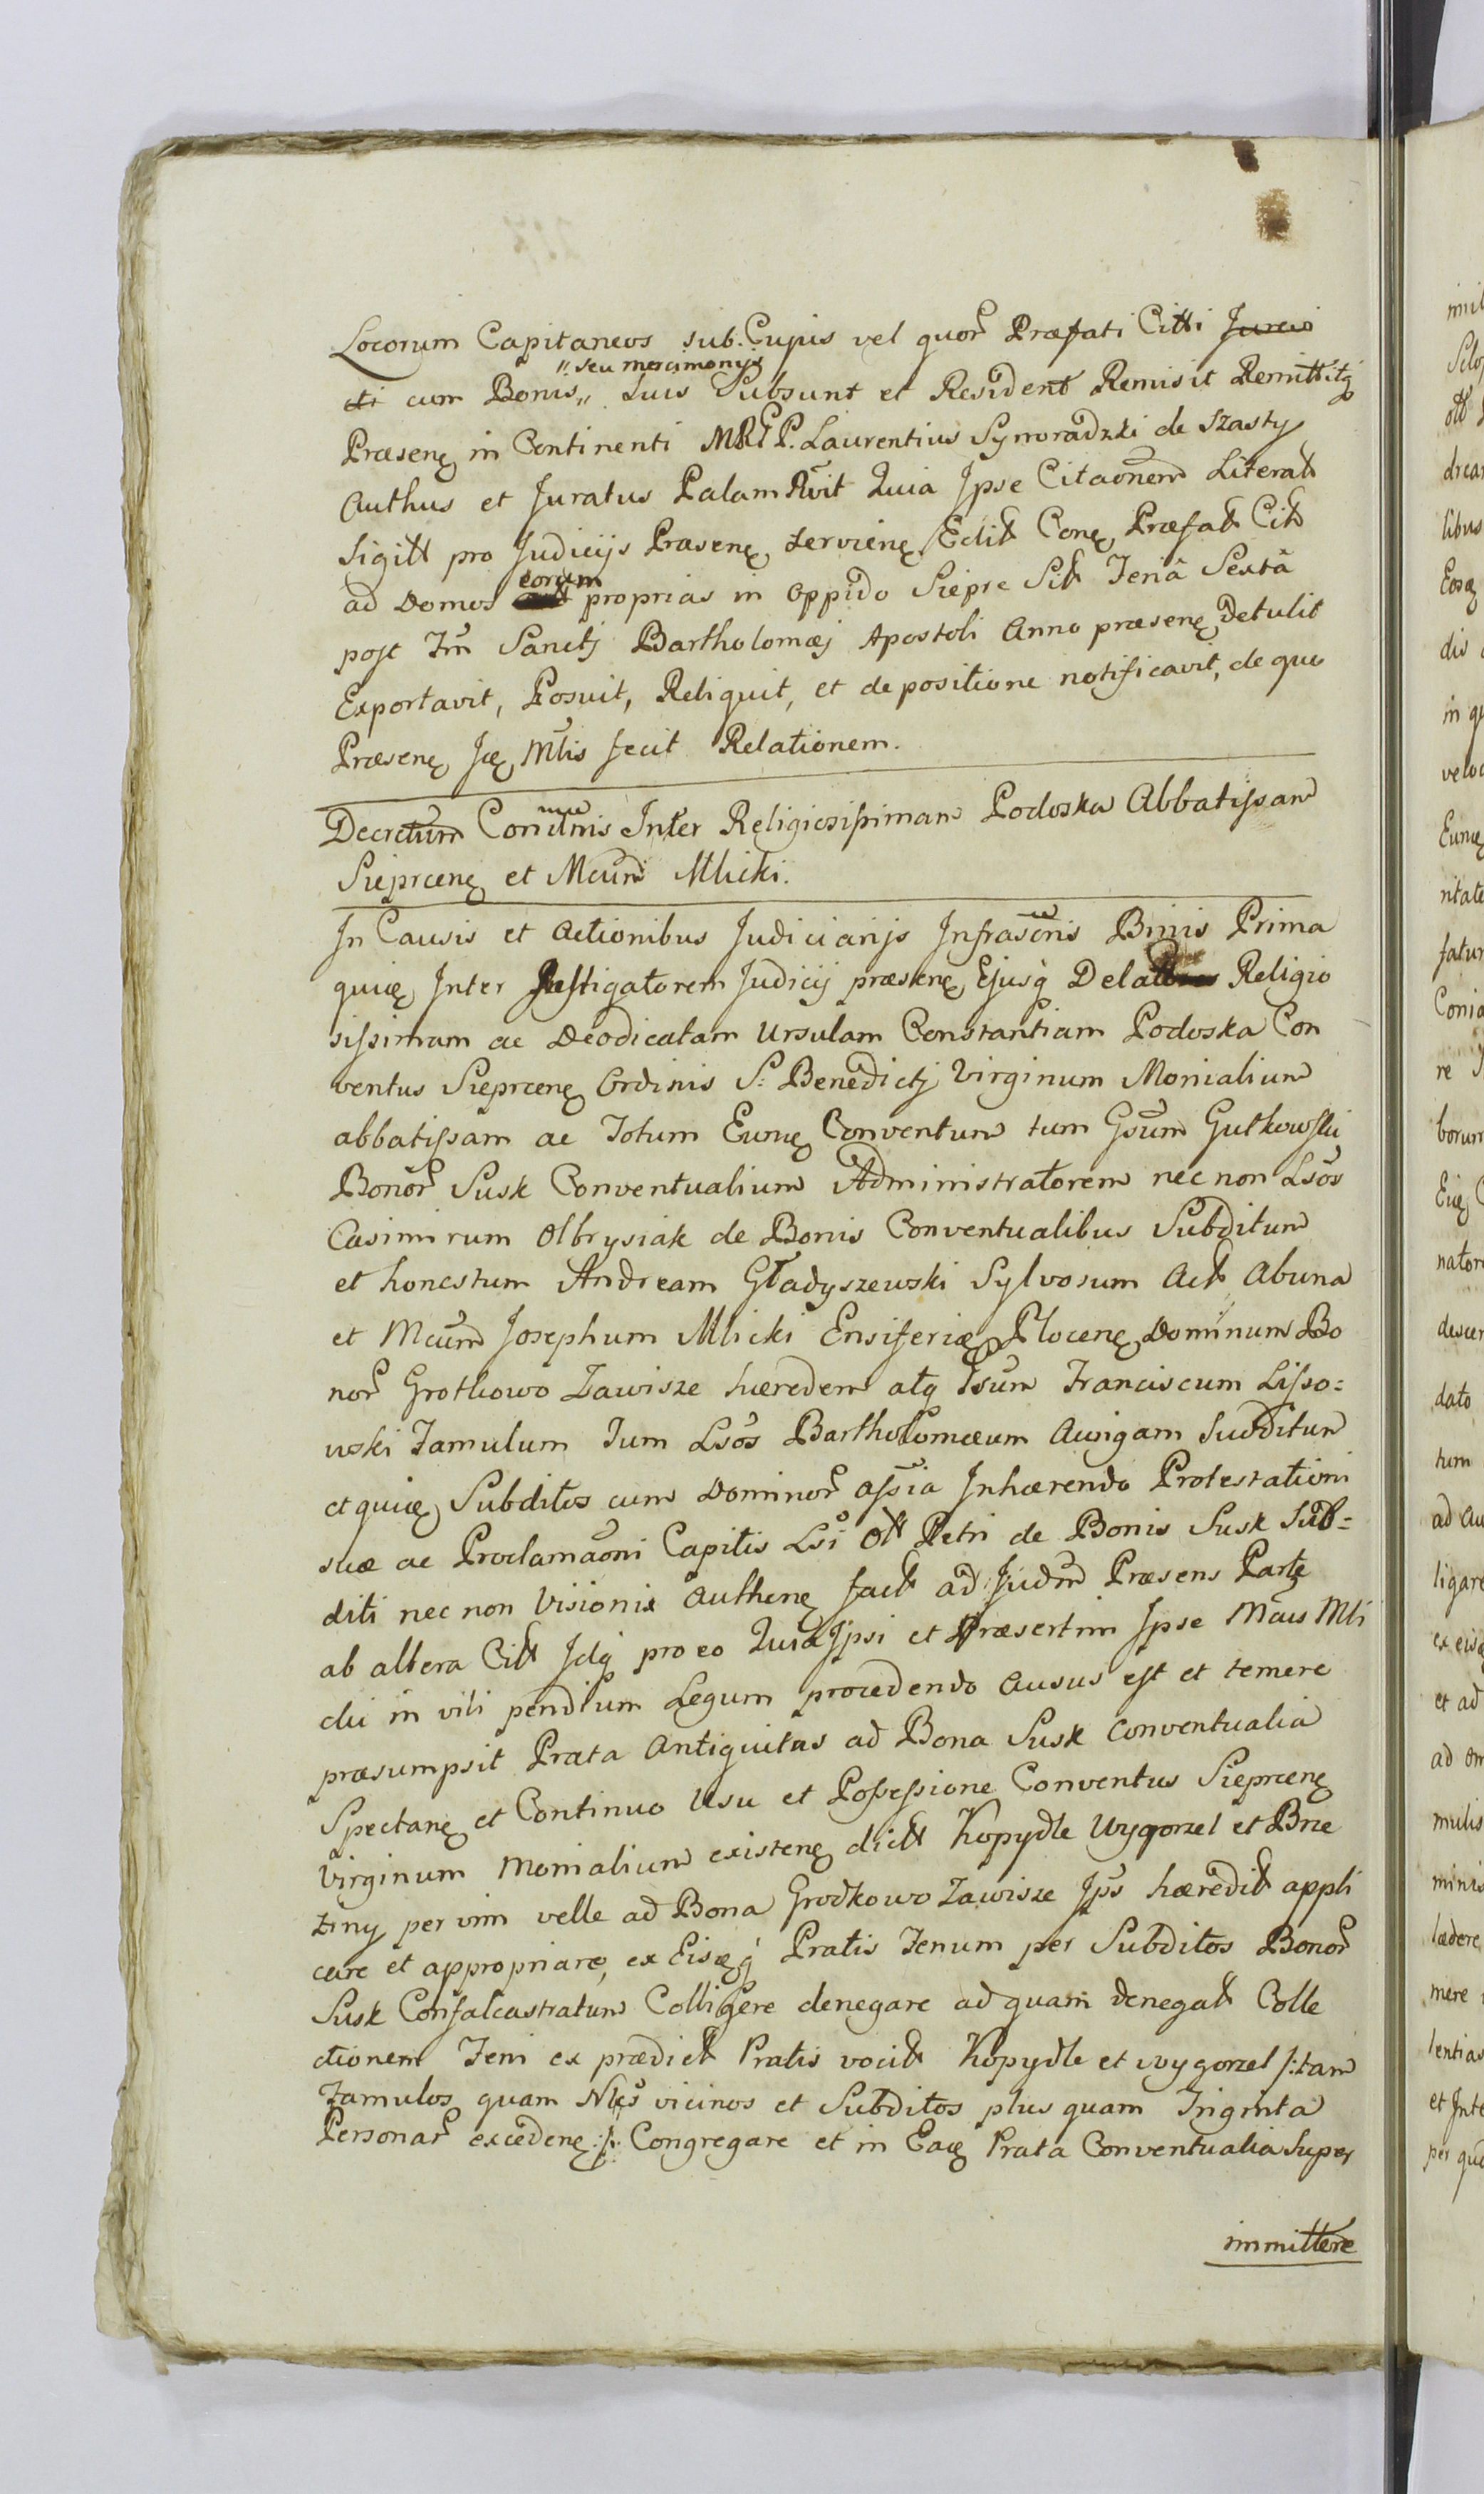 Locorum Capitaneos sub Cujus vel quor Præfati Citti
cum Bonis,, ,,seu mercimonys Suis Subsunt et Resident Remisit Remittitq
Præsenę in Continenti MRGP. Laurentius Symoradzki de Szasty
Authus et Juratus Palam Rvit Quia Ipse Citaonem Literat
Sigitt pro Judicijs Præsenę servienę Edit Conę Præfat Cit
ad Domos eorum proprias in Oppido Siepre Sit Feriâ Sextâ
post Fm Sanctj Bartholomæj Apostoli Anno præsenę Detulit
Exportavit, Posuit, Reliquit, et de positione notificavit, de quo
Præsenę Jcę Mtis fecit Relationem.
Decretum Inter Religiosissimam Podoska Abbatissam
Sieprcenę et Mcum Mlicki.
In Causis et Actionibus Judiciarijs Infrascris Binis Prima
quię Inter Instigatorem Judicij præsenę Ejusq Religio
sissimam ac Deodicatam Ursulam Constantiam Podoska Con
ventus Sieprcenę Ordinis S: Benedictj Virginum Monialium
abbatissam ac Totum Eunę Conventum tum Gsum Gutkowski
Bonor Susk Conventualium Administratorem nec non Lsos
Casimirum Olbrysiak de Bonis Conventualibus Subditum
et honestum Andream Gładyszewski Sylvosum Act Abuna
et Mcum Josephum Mlicki Ensiferię Plocenę Dominum Bo
nor Grotkowo Zawisze hæredem atq Franciscum Lisso=
wski Famulum Tum Lsos Bartholomæum Aurigam Subditum
et quię Subditos cum Dominor assia Inhærendo Protestationi
suæ ac Proclamaoni Capitis Lsi Ott Petri de Bonis Susk Sub=
diti nec non Visionis Authenę fact ad Judm Præsens Partę
ab altera Citt Idq pro eo Quia Ipsi et Præsertim Ipse Mcus Mli
cki in vili pendium Legum procedendo Ausus est et temere
præsumpsit Prata Antiquitus ad Bona Susk Conventualia
Spectanę et Continuo Usu et Possessione Conventus Sieprcenę
Virginum Monialium existenę dictt Kopydle Wygorzel et Brze
ziny per vim velle ad Bona Grodkowo Zawisze Jps hæredit appli
care et appropriare, ex Eisęq Pratis Fenum per Subditos Bonor
Susk Confalcastratum Colligere denegare ad quam denegat Colle
ctionem Feni ex prædict Pratis vocit Kopydle et Wygorzel /:tam
Famulos quam Nles vicinos et Subditos plus quam Triginta
Personar excedenę:/: Congregare et in Eaę Prata Conventualia Super
immittere